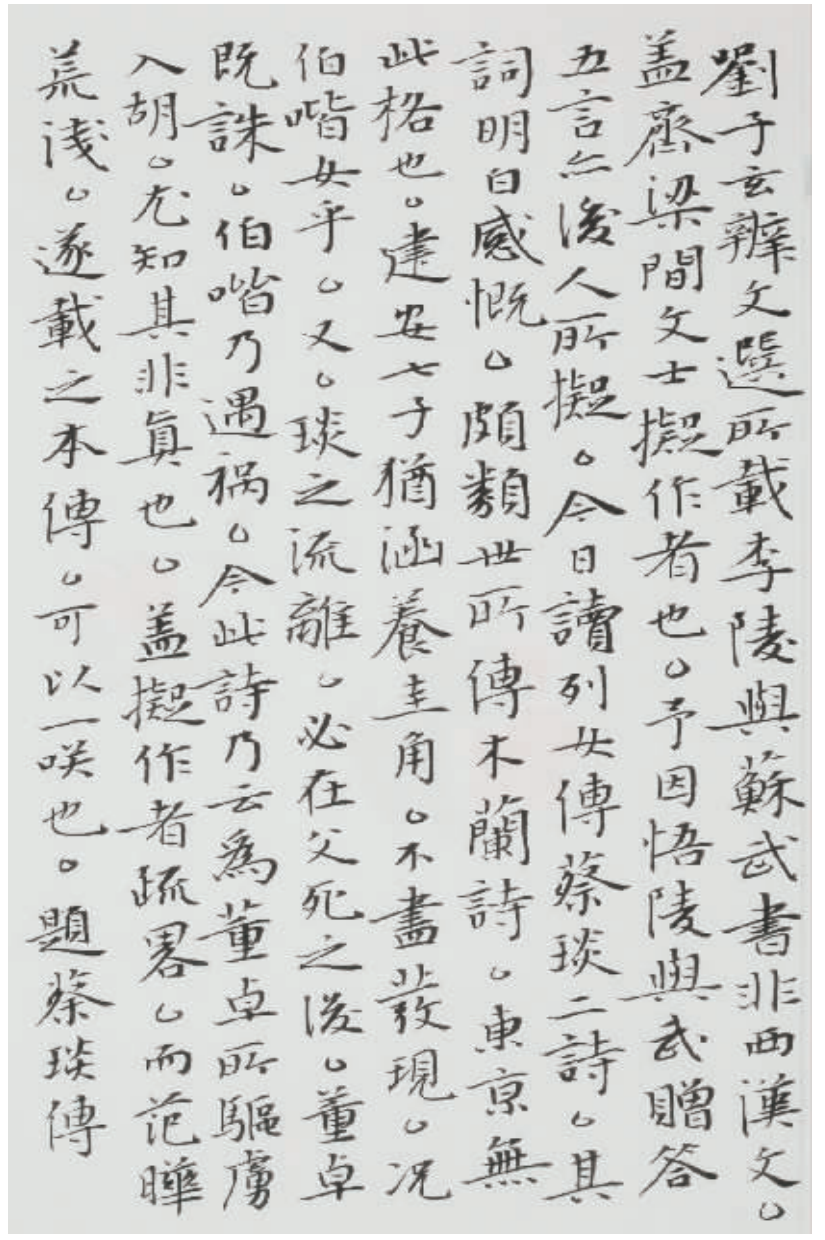 劉子玄辨文選所載李陵與蘇武書非西漢文。
盖齊梁間文士擬作者也。予因悟陵與武贈答
五言亦後人所擬。今日讀列女傳蔡琰二詩。其
詞明白感慨。頗類世所傳木蘭詩。東京無
此格也。建安七子猶涵養圭角。不盡發現。况
伯喈女乎。又。琰之流離。必在父死之後。董卓
既誅。伯喈乃遇禍。今此詩乃云為董卓所驅虜
入胡。尤知其非真也。盖擬作者疏畧。而范曄
荒淺。遂載之本傳。可以一咲也。題蔡琰傳